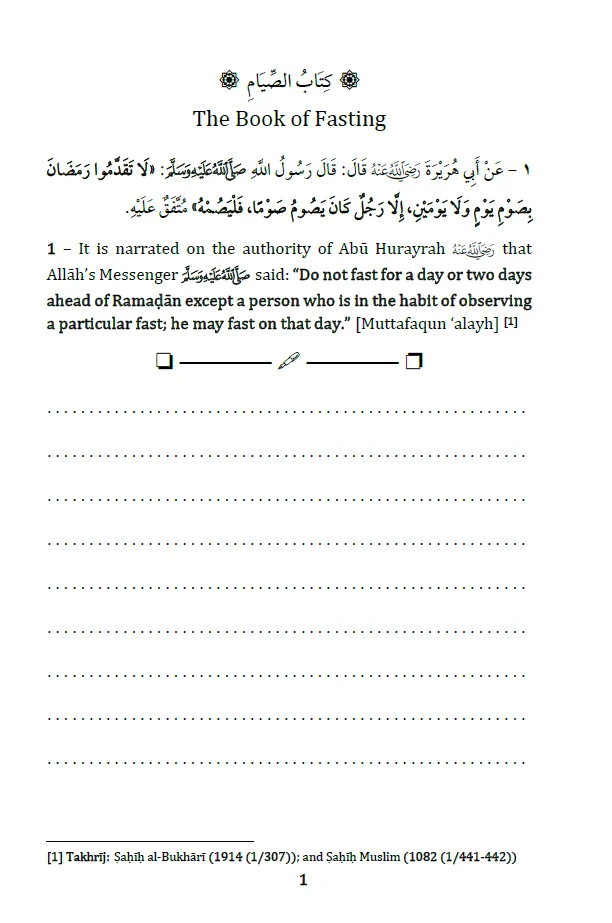 كِتَابُ الصِّيَامِ
The Book of Fasting
١ – عَنْ أَبِي هُرَيْرَةَ رَضِيَ اللَّهُ عَنْهُ قَالَ: قَالَ رَسُولُ اللَّهِ صَلَّى اللَّهُ عَلَيْهِ وَسَلَّمَ: «لَا تَقَدَّمُوا رَمَضَانَ
بِصَوْمِ يَوْمٍ وَلَا يَوْمَيْنِ، إِلَّا رَجُلٌ كَانَ يَصُومُ صَوْمًا، فَلْيَصُمْهُ» مُتَّفَقٌ عَلَيْهِ.
1 – It is narrated on the authority of Abū Hurayrah رَضِيَ اللَّهُ عَنْهُ that
Allāh’s Messenger صَلَّى اللَّهُ عَلَيْهِ وَسَلَّمَ said: “Do not fast for a day or two days
ahead of Ramaḍān except a person who is in the habit of observing
a particular fast; he may fast on that day.” [Muttafaqun ‘alayh] [1]
[1] Takhrīj: Ṣaḥīḥ al-Bukhārī (1914 (1/307)); and Ṣaḥīḥ Muslim (1082 (1/441-442))
1